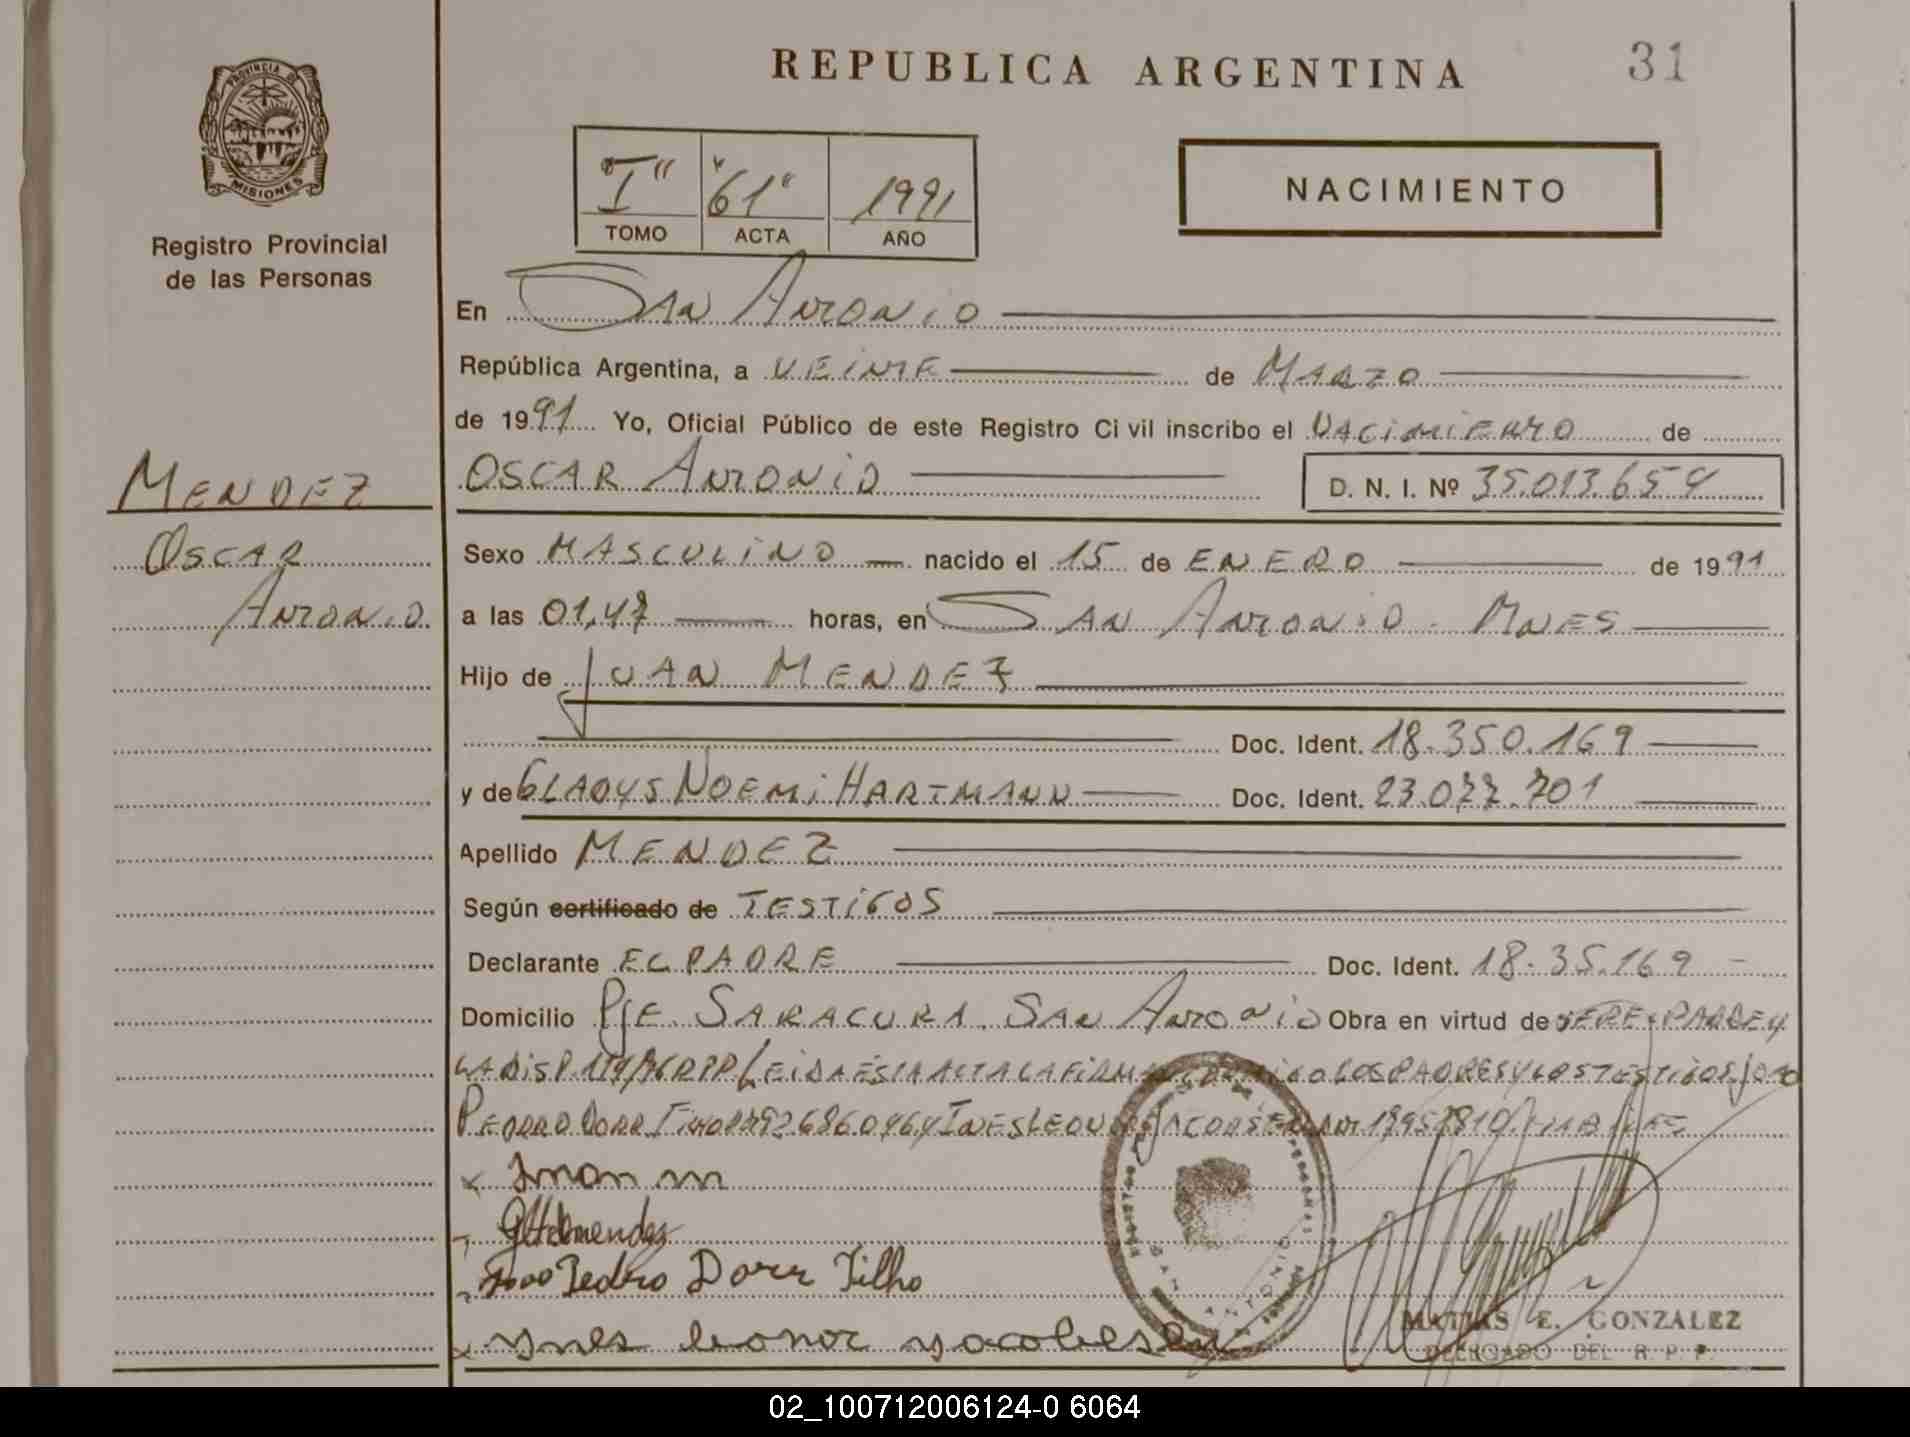 REPUBLICA ARGENTINA
31
PROVINCIA DE MISIONES
Registro Provincial
de las Personas
"I" "61" 1991
TOMO ACTA AÑO
NACIMIENTO
En SAN ANTONIO
República Argentina, a VEINTE de MARZO
de 1991 Yo, Oficial Público de este Registro Civil inscribo el NACIMIENTO de
MENDEZ
OSCAR
ANTONIO
OSCAR ANTONIO D. N. I. Nº 35.013.654
Sexo MASCULINO nacido el 15 de ENERO de 1991
a las 01,47 horas, en SAN ANTONIO. MNES
Hijo de JUAN MENDEZ
Doc. Ident. 18.350.169
y de GLADYS NOEMI HARTMANN Doc. Ident. 23.077.701
Apellido MENDEZ
Según certificado de TESTIGOS
Declarante EL PADRE Doc. Ident. 18.35.169
Domicilio PJE. SARACURA. SAN ANTONIO Obra en virtud de SER EL PADRE Y
LA DISP. LEIDA ESTA ACTA LA FIRMAN LOS PADRES Y LOS TESTIGOS JOAO
PEDRO DORR INES LEONOR
Juan m
GHdmendez
Joao Pedro Dorr Filho
ynes leonor
SAN ANTONIO
MATIAS E. GONZALEZ
DELEGADO DEL R. P. P.
02_100712006124-0 6064